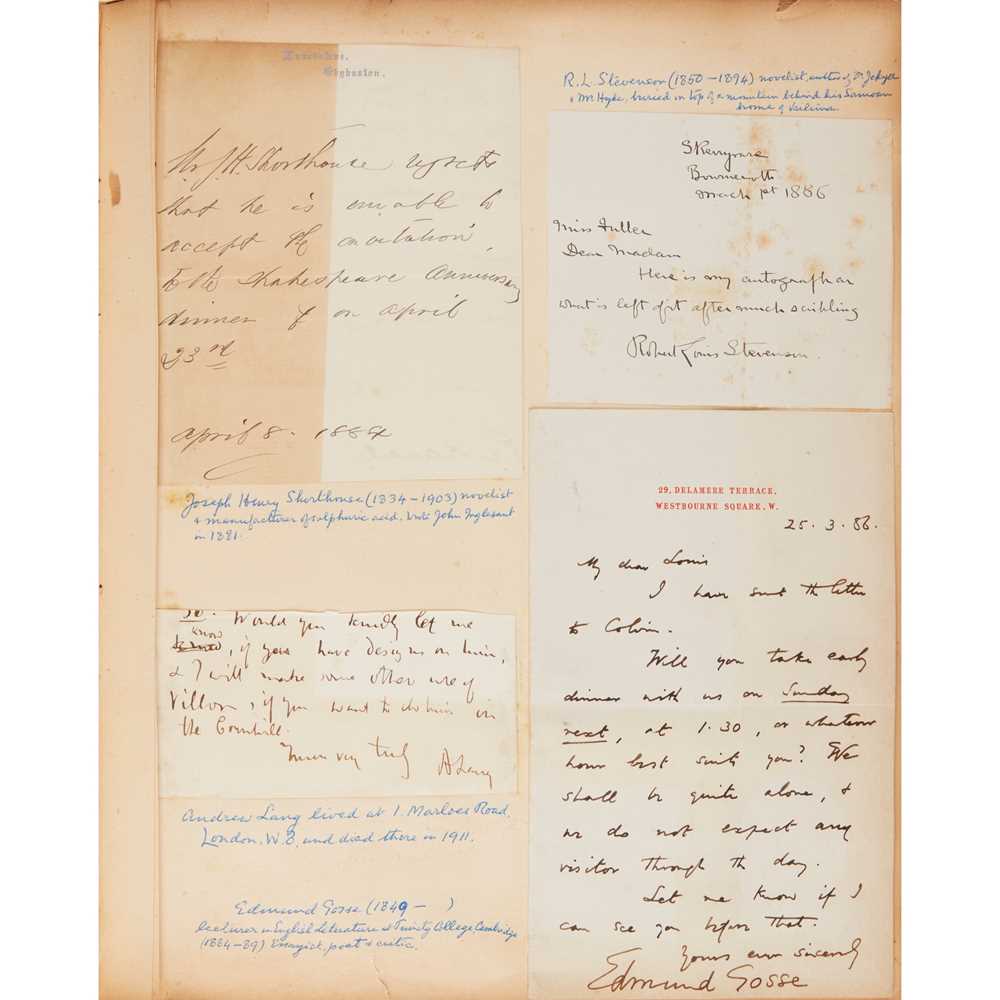 Edgbaston.
Mr J H Shorthouse regrets
that he is unable to
accept the invitation
to the Shakespeare Anniversary
dinner on April
23rd
April 8. 1884
Joseph Henry Shorthouse (1834–1903) novelist
& manufacturer of sulphuric acid. Wrote John Inglesant
in 1881.
so. Would you kindly let me
know, if you have designs on him,
& I will make some other use of
Villon, if you want to do him in
the Cornhill.
Yours very truly
A Lang
Andrew Lang lived at 1. Marloes Road,
London. W.8. and died there in 1911.
Edmund Gosse (1849– )
Lecturer in English Literature at Trinity College, Cambridge
(1884–89) Essayist, poet & critic.
R. L. Stevenson (1850–1894) novelist, author of Dr Jekyll
& Mr Hyde, buried on top of a mountain behind his Samoan
home of Vailima
Skerryvore
Bournemouth
March 1st 1886
Miss Fuller
Dear Madam
Here is my autograph or
what is left of it after much scribling
Robert Louis Stevenson.
29, DELAMERE TERRACE,
WESTBOURNE SQUARE, W.
25. 3. 86.
My dear Louis
I have sent the letter
to Colvin.
Will you take early
dinner with us on Sunday
next, at 1.30, or whatever
hour best suits you? We
shall be quite alone, &
we do not expect any
visitor through the day.
Let me know if I
can see you before that.
Yours ever sincerely
Edmund Gosse